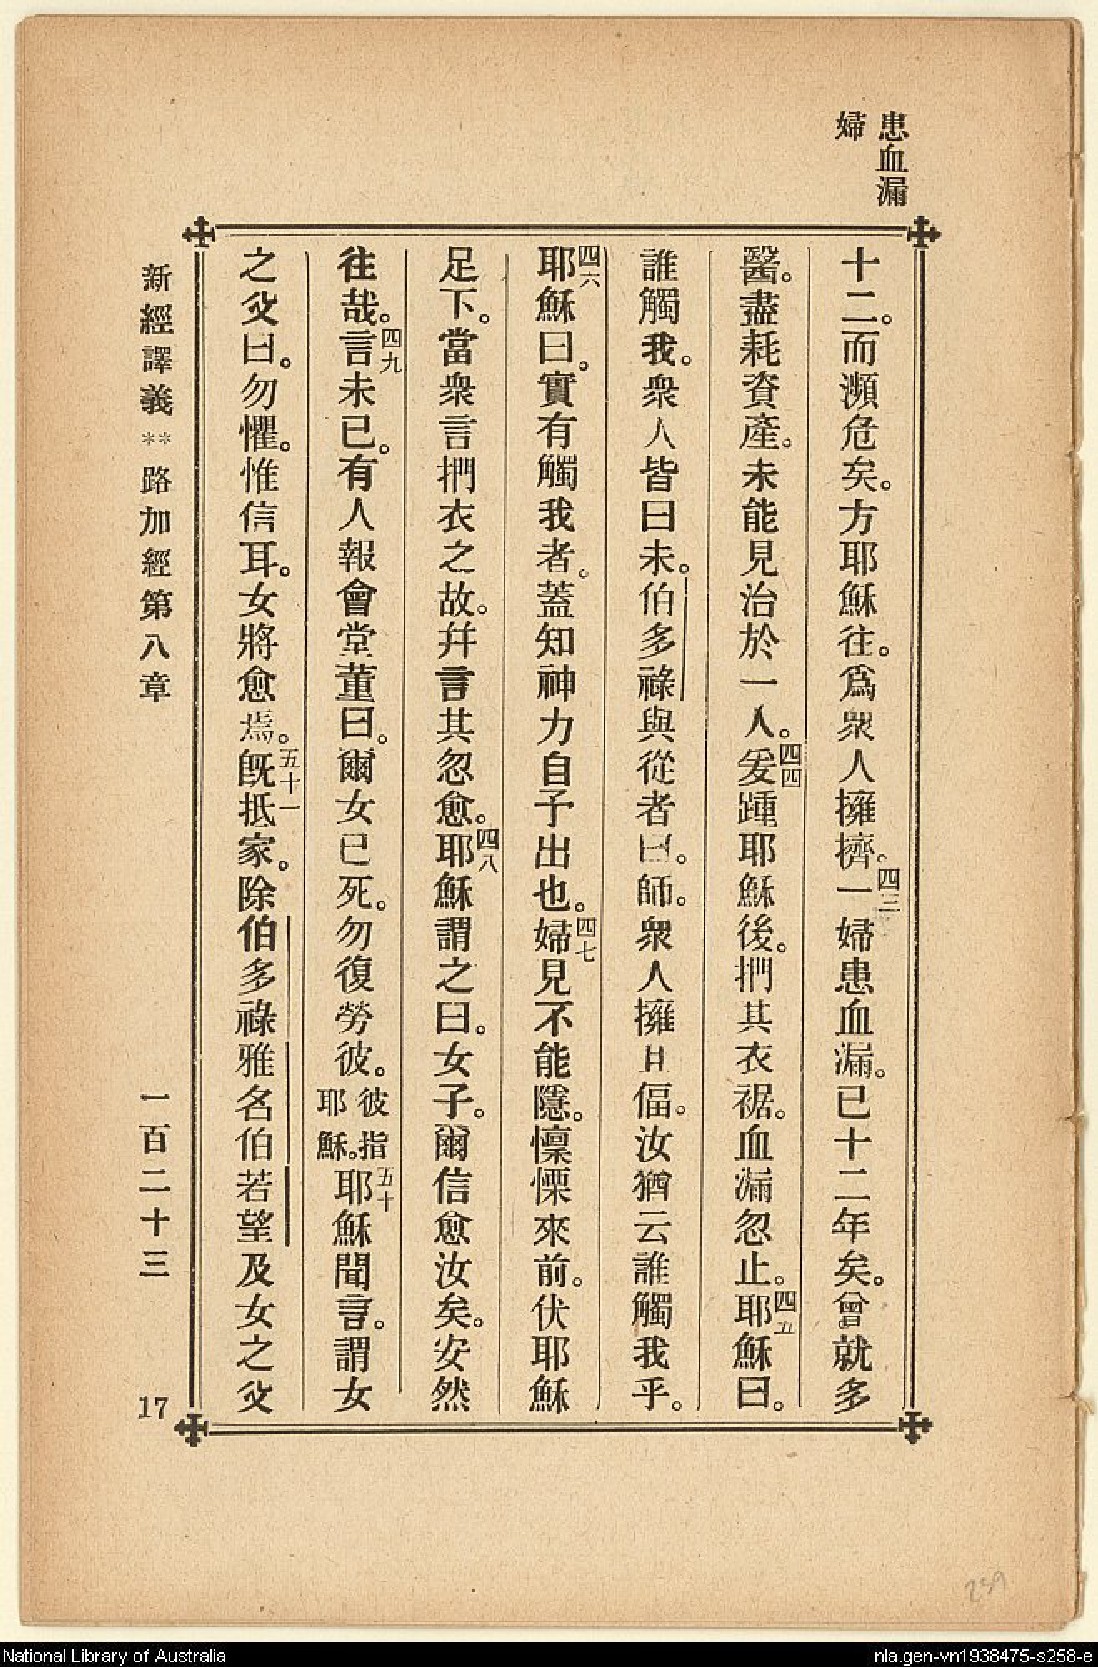 患血漏
婦
十二。而瀕危矣。方耶穌往。爲衆人擁擠。四三一婦患血漏。已十二年矣。曾就多
醫。盡耗資產。未能見治於一人。四四爰踵耶穌後。捫其衣裾。血漏忽止。四五耶穌曰。
誰觸我。衆人皆曰未。伯多祿與從者曰。師。衆人擁且偪。汝猶云誰觸我乎。
四六耶穌曰。實有觸我者。蓋知神力自予出也。四七婦見不能隱。懍慄來前。伏耶穌
足下。當衆言捫衣之故。幷言其忽愈。四八耶穌謂之曰。女子。爾信愈汝矣。安然
往哉。四九言未已。有人報會堂董曰。爾女已死。勿復勞彼。彼指耶穌。五十耶穌聞言。謂女
之父曰。勿懼。惟信耳。女將愈焉。五十一旣抵家。除伯多祿雅名伯若望及女之父
新經譯義 ** 路加經第八章 一百二十三 17
259
National Library of Australia
nla.gen-vn1938475-s258-e